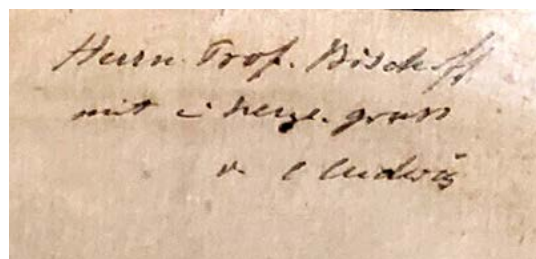 Herrn Prof. Bischoff
mit e herzl. gruss
v. C Ludwig